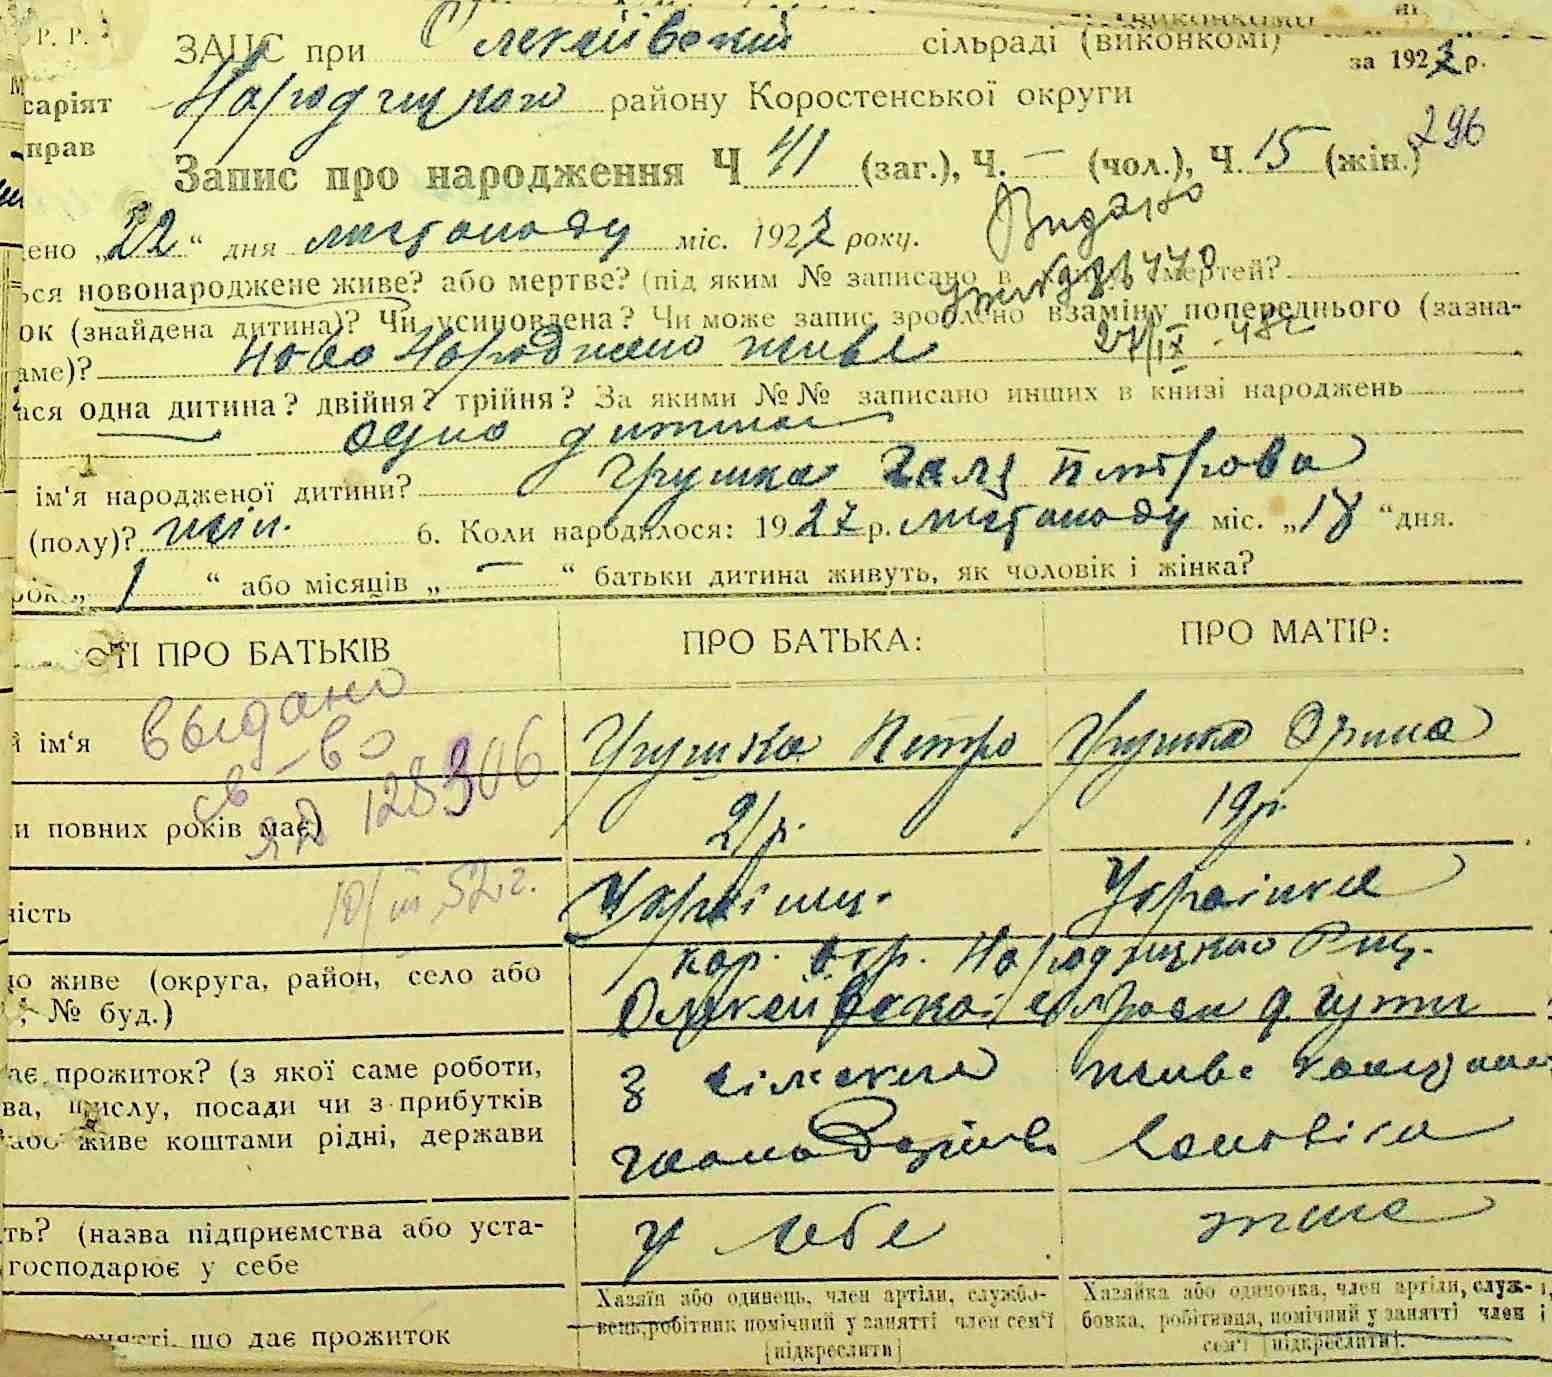 Р. Р.
ЗАПС при Олексіївский сільраді (виконкомі)
за 1927 р.
саріят Народицкого району Коростенської округи
прав
296
Запис про народження Ч 41 (заг.), Ч. — (чол.), Ч. 15 (жін.)
ено „22“ дня листопаду міс. 1927 року.
Видано
ся новонароджене живе? або мертве? (під яким № записано в смертей?
ок (знайдена дитина)? Чи усиновлена? Чи може запис зроблено взаміну попереднього (зазна-
аме)? ново Народжено живе
27/IX - 48г
ася одна дитина? двійня? трійня? За якими №№ записано инших в книзі народжень
одно дитина
ім‘я народженої дитини? Грушка Галя Питрова
(полу)? жін. 6. Коли народилося: 1927 р. листопаду міс. „18“ дня.
рок „ 1 “ або місяців „ — “ батьки дитина живуть, як чоловік і жінка?
ОТІ ПРО БАТЬКІВ ПРО БАТЬКА: ПРО МАТІР:
выдано
св-во
й ім‘я Грушка Петро Грушка Орина
128306
и повних років має) 21р. 19р.
10/III 52г.
ність Українц. Українка
кор. окр. Народицкаго Риц.
що живе (округа, район, село або
, № буд.) Олексіївскої сільради
ає прожиток? (з якої саме роботи, з сільского живе
ва, числу, посади чи з прибутків
або живе коштами рідні, держави господарівс чоловіка
ть? (назва підприємства або уста- у себе теше
господарює у себе
Хазяїн або одинець, член артіли, службо- Хазяйка або одиночка, член артіли, служ-
вець, робітник помічний у занятті член сем‘ї бовка, робітниця, помічний у занятті член
[підкреслити] сем‘ї [підкреслити].
занятті, що дає прожиток